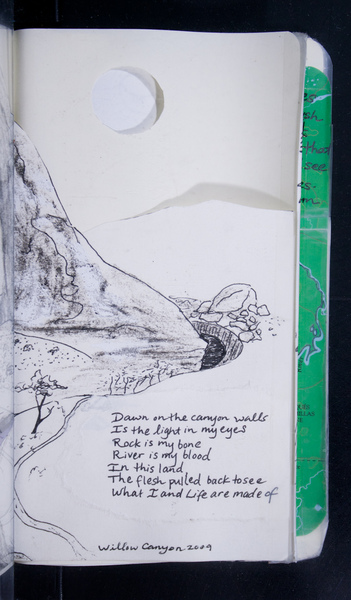 Dawn on the canyon walls
Is the light in my eyes
Rock is my bone
River is my blood
In this land
The flesh pulled back to see
What I and Life are made of
Willow Canyon 2009
see